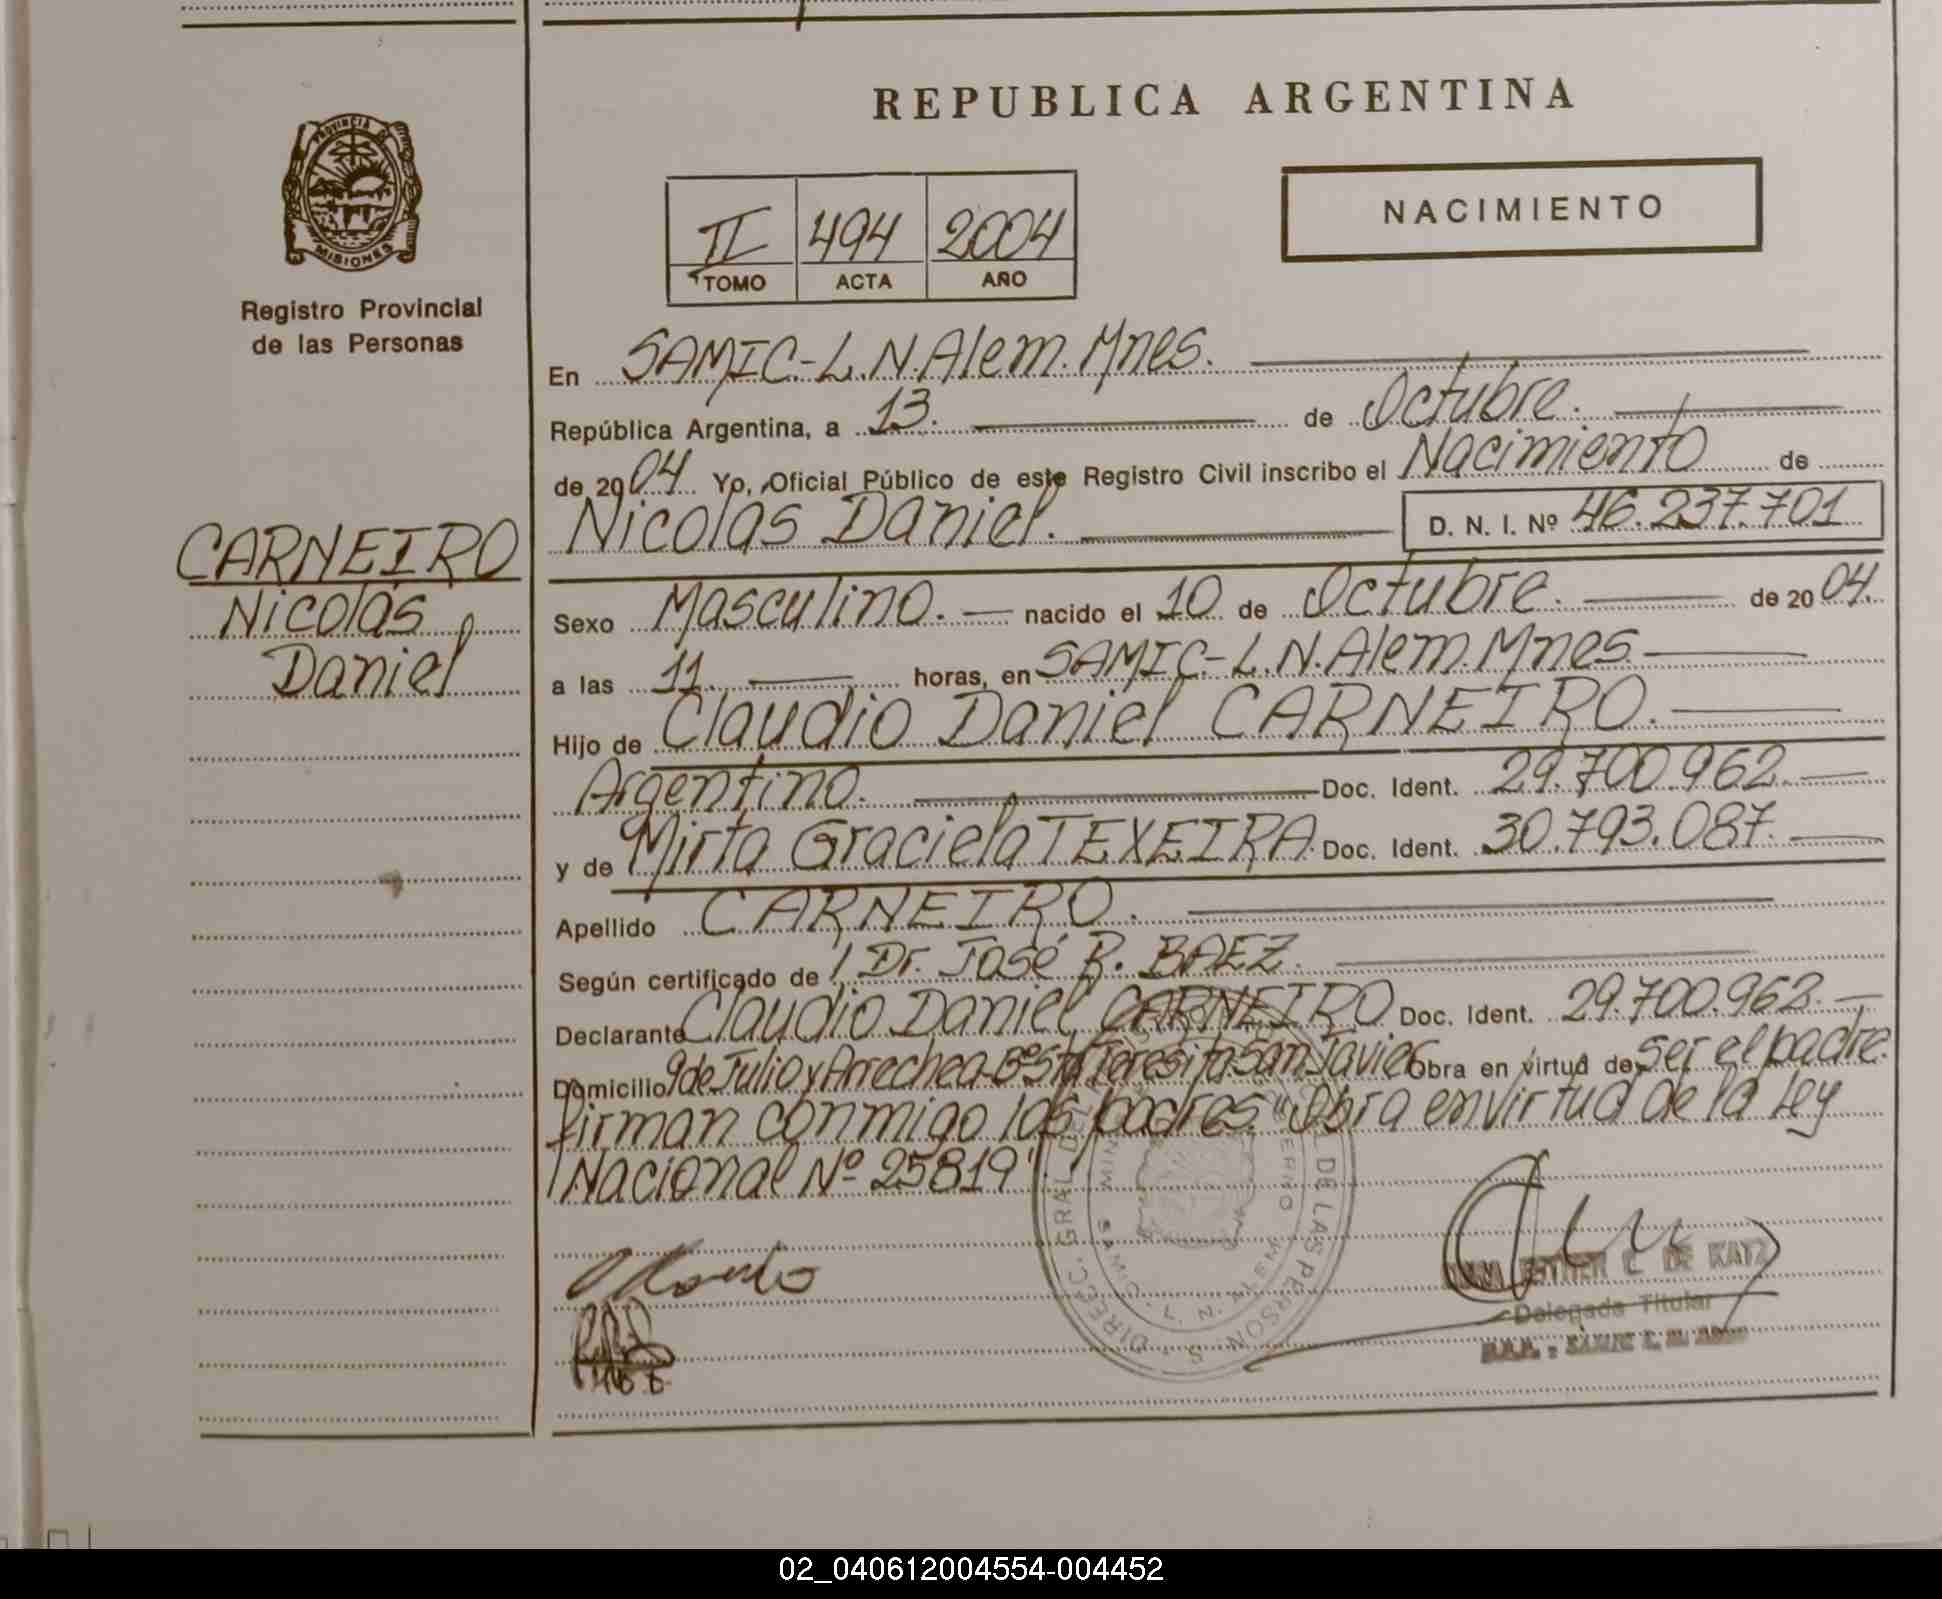 REPUBLICA ARGENTINA
PROVINCIA DE MISIONES
Registro Provincial
de las Personas
II 494 2004
TOMO ACTA AÑO
NACIMIENTO
CARNEIRO
Nicolás
Daniel
En SAMIC-L.N.Alem.Mnes.
República Argentina, a 13. de Octubre.
de 2004 Yo, Oficial Público de este Registro Civil inscribo el Nacimiento de
Nicolás Daniel. D. N. I. Nº 46.237.701
Sexo Masculino. nacido el 10 de Octubre. de 2004.
a las 11. horas, en SAMIC-L.N.Alem.Mnes.
Hijo de Claudio Daniel CARNEIRO.
Argentino. Doc. Ident. 29.700.962.
y de Mirta Graciela TEXEIRA. Doc. Ident. 30.793.087.
Apellido CARNEIRO.
Según certificado de Dr. José R. BAEZ.
Declarante Claudio Daniel CARNEIRO Doc. Ident. 29.700.962.
Domicilio 9 de Julio y Arrechea-Bº Sta Teresita San Javier Obra en virtud de ser el padre.
firman conmigo los padres "Obra en virtud de la Ley
Nacional Nº 25819".
DIREC. GRAL DE LAS PERSON S
ESTHER C. DE KATZ
Delegada Titular
02_040612004554-004452